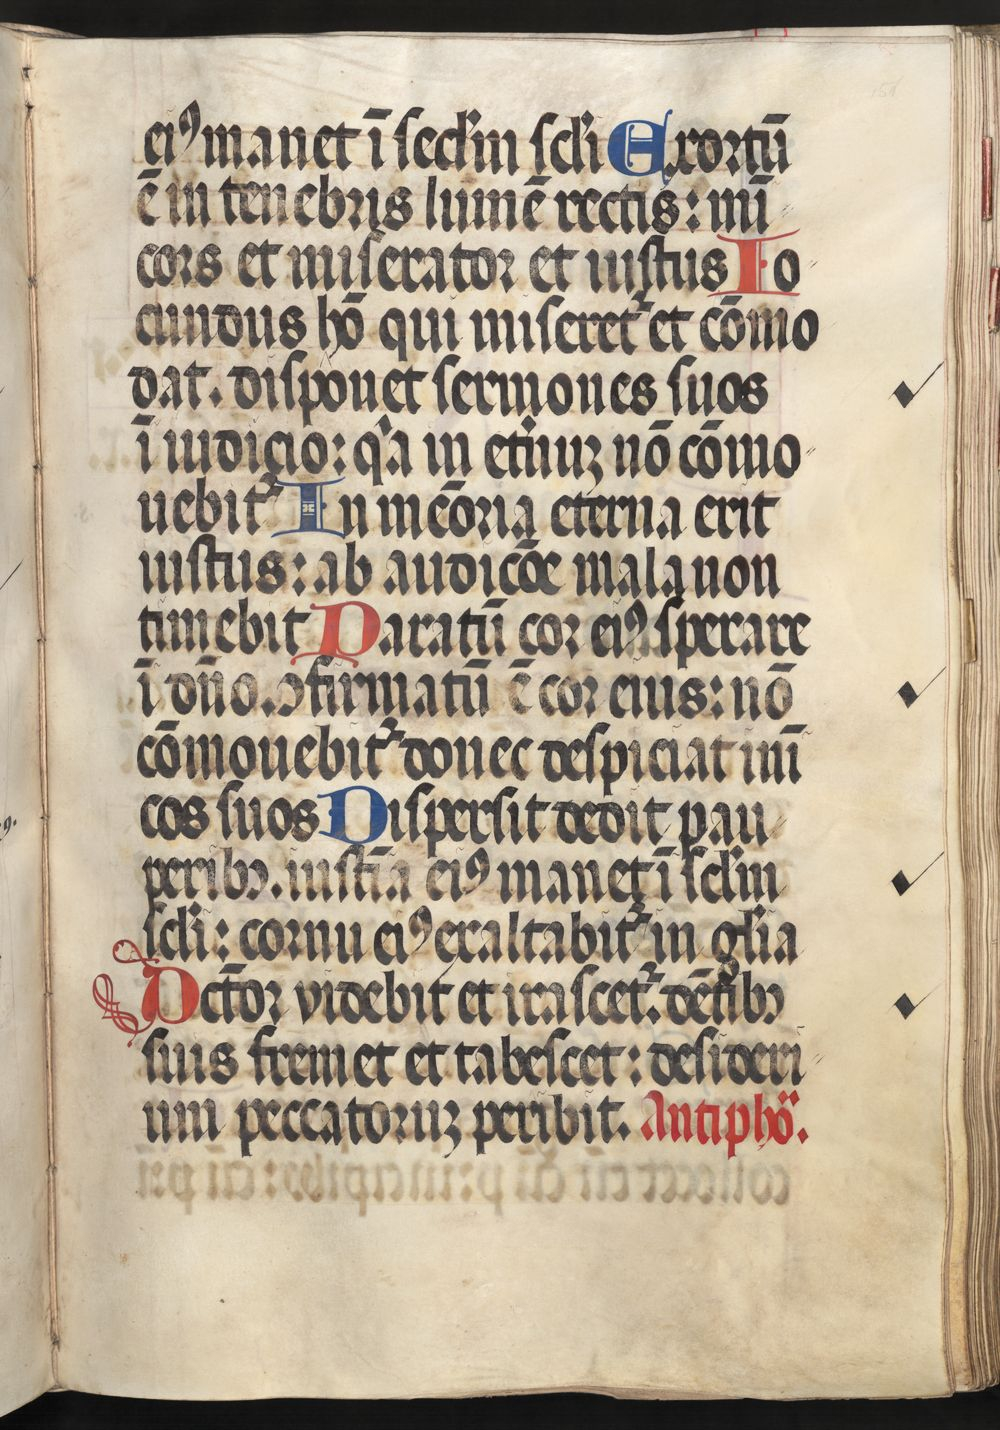 eiꝰ manet ī seclm̄ scl̄i Exortū
ē in tenebris lumē rectis: mī
cors et miserator et iustus Io
cundus hō qui miseret᷑ et cōmo
dat. disponet sermones suos
ī iudicio: qͣa in et̄nuꝫ nō cōmo
uebit᷑ In mēoria eterna erit
iustus: ab audicōe mala non
timebit Paratū cor eiꝰ sperare
ī dn̄o. ꝯfirmatū ē cor eius: nō
cōmouebit᷑ donec despiciat inī
cos suos Dispersit dedit pau
peribꝫ. iustīa eiꝰ manet ī sclm̄
scl̄i: cornu eiꝰ exaltabit᷑ in gl̄ia
Pctōr videbit et irascet᷑. dētibꝫ
suis fremet et tabescet: desideri
um peccatoruꝫ peribit. Antiphō.